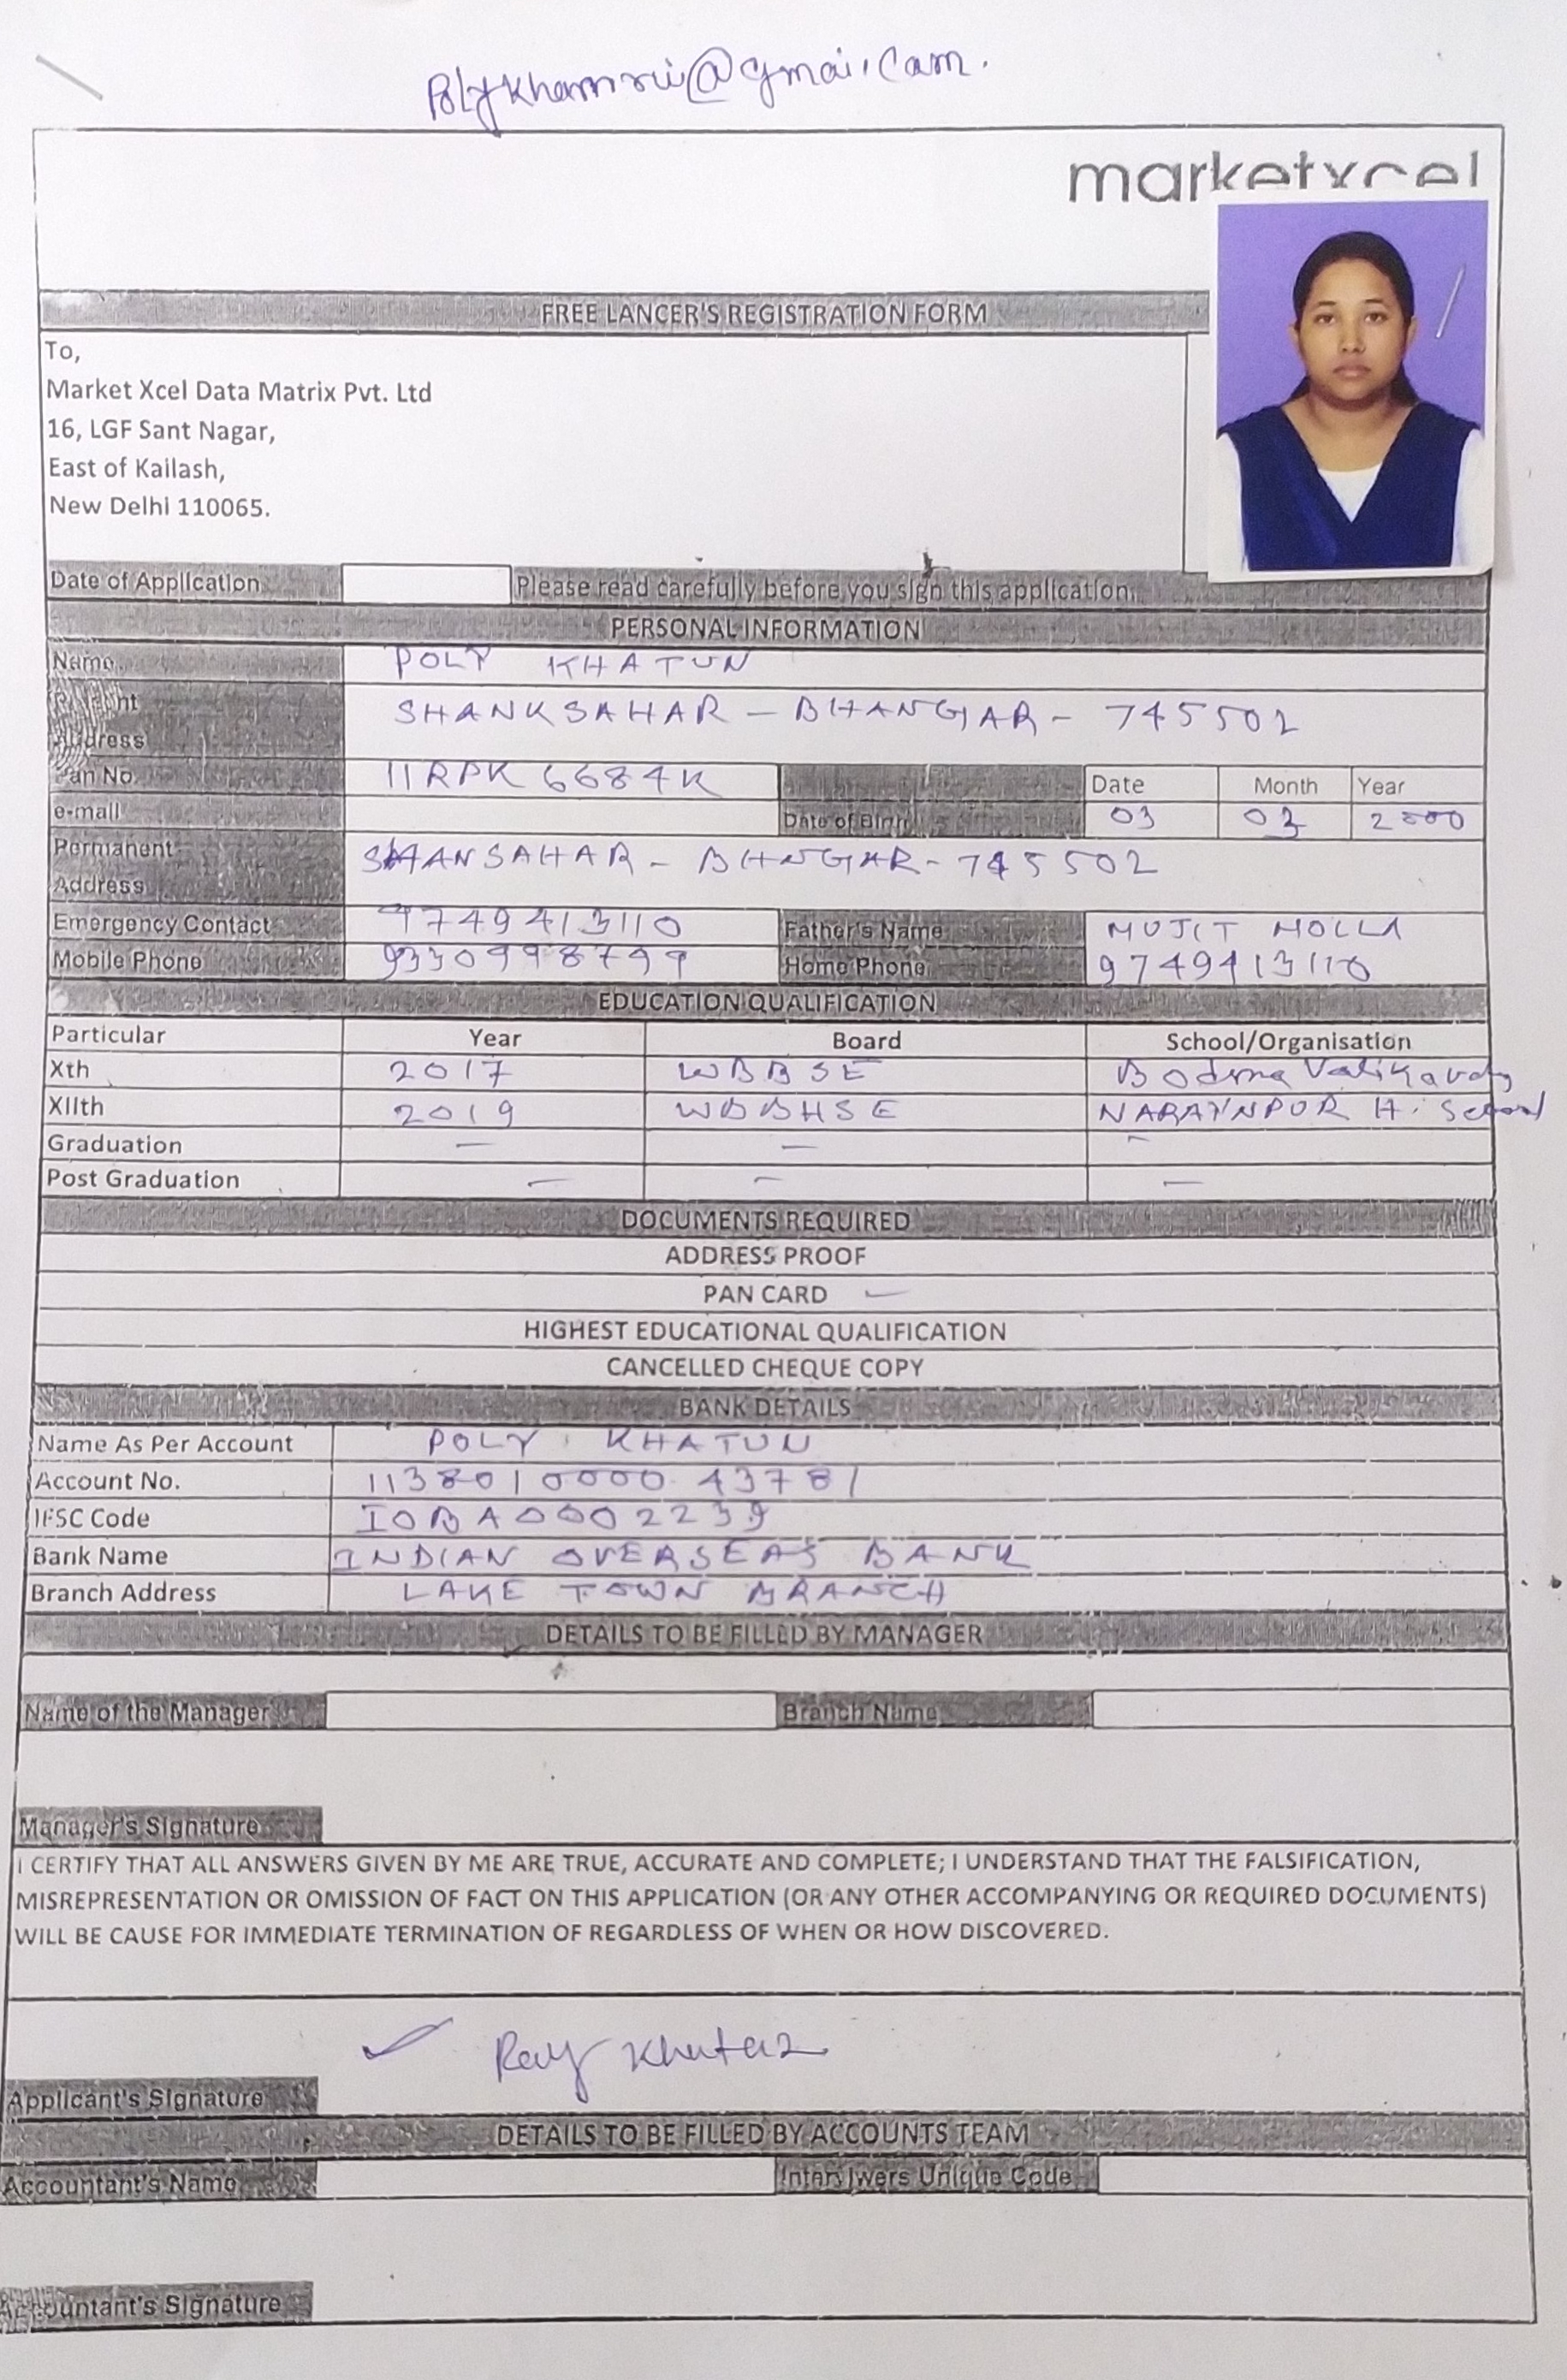 marketxcel
FREE LANCER'S REGISTRATION FORM
To,
Market Xcel Data Matrix Pvt. Ltd
16, LGF Sant Nagar,
East of Kailash,
New Delhi 110065.
Date of Application Please read carefully before you sign this application.
PERSONAL INFORMATION
Name POLY KHATUN
Address SHANKSAHAR - BHANGAR - 745502
Pan No. IIRPK6684K Date Month Year
e-mail Date of Birth 03 03 2000
Permanent SHANSAHAR - BHNGAR - 745502
Address
Emergency Contact 9749413110 Father's Name MUJIT MOLLA
Mobile Phone 9330998799 Home Phone 9749413110
EDUCATION QUALIFICATION
Particular Year Board School/Organisation
Xth 2017 WBBSE
XIIth 2019 WBBHSE NARAYNPUR H. School
Graduation — — —
Post Graduation — — —
DOCUMENTS REQUIRED
ADDRESS PROOF
PAN CARD
HIGHEST EDUCATIONAL QUALIFICATION
CANCELLED CHEQUE COPY
BANK DETAILS
Name As Per Account POLY KHATUN
Account No. 113801000043781
IFSC Code IOBA0002239
Bank Name INDIAN OVERSEAS BANK
Branch Address LAKE TOWN BRANCH
DETAILS TO BE FILLED BY MANAGER
Name of the Manager Branch Name
Manager's Signature
I CERTIFY THAT ALL ANSWERS GIVEN BY ME ARE TRUE, ACCURATE AND COMPLETE; I UNDERSTAND THAT THE FALSIFICATION,
MISREPRESENTATION OR OMISSION OF FACT ON THIS APPLICATION (OR ANY OTHER ACCOMPANYING OR REQUIRED DOCUMENTS)
WILL BE CAUSE FOR IMMEDIATE TERMINATION OF REGARDLESS OF WHEN OR HOW DISCOVERED.
Applicant's Signature
DETAILS TO BE FILLED BY ACCOUNTS TEAM
Accountant's Name Unique Code
Accountant's Signature